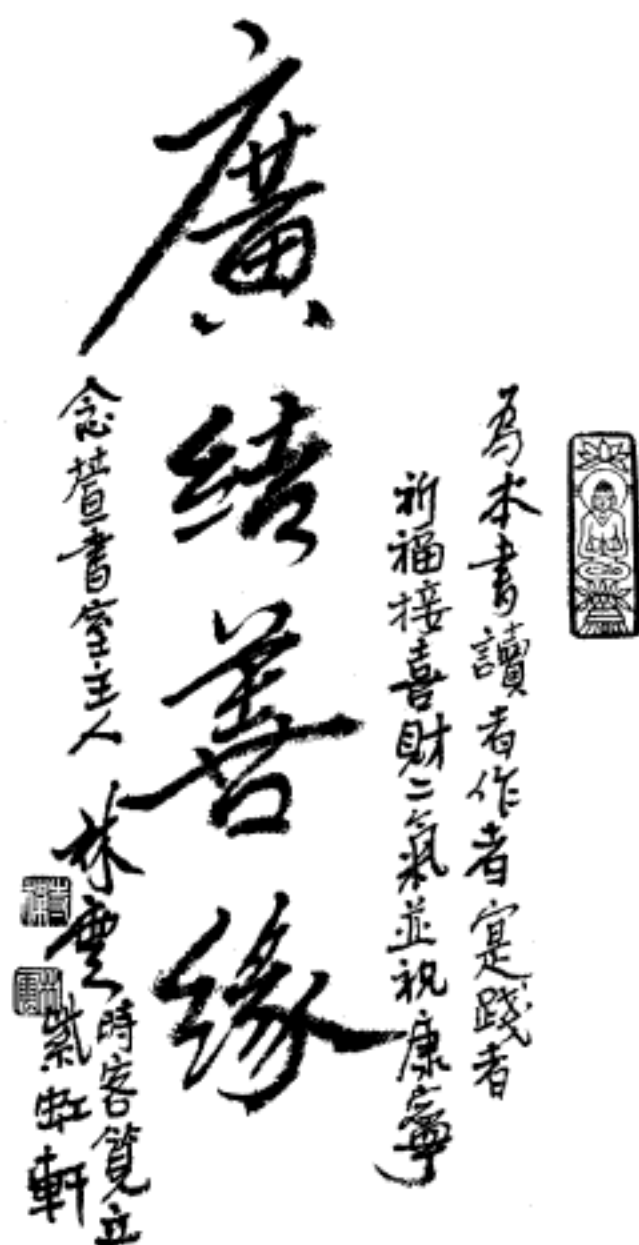 為本書讀者作者寔踐者
祈福接喜財二氣並祝康寧
廣結善緣
念慈書室主人
林雲
時客筧立
紫虹軒